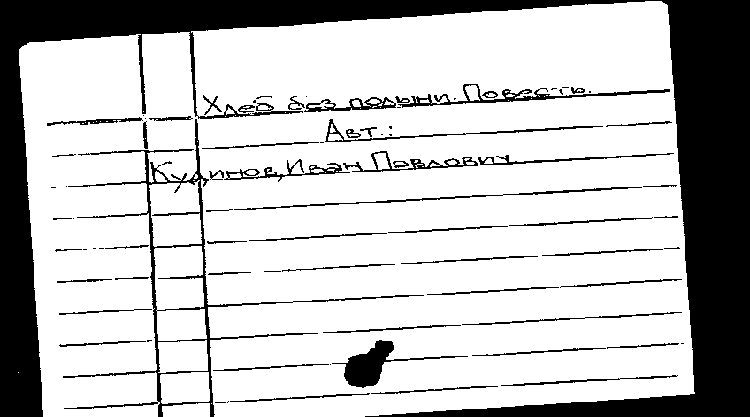 Хлеб без полыни. Повесть.
Авт.:
Кудинов, Иван Павлович